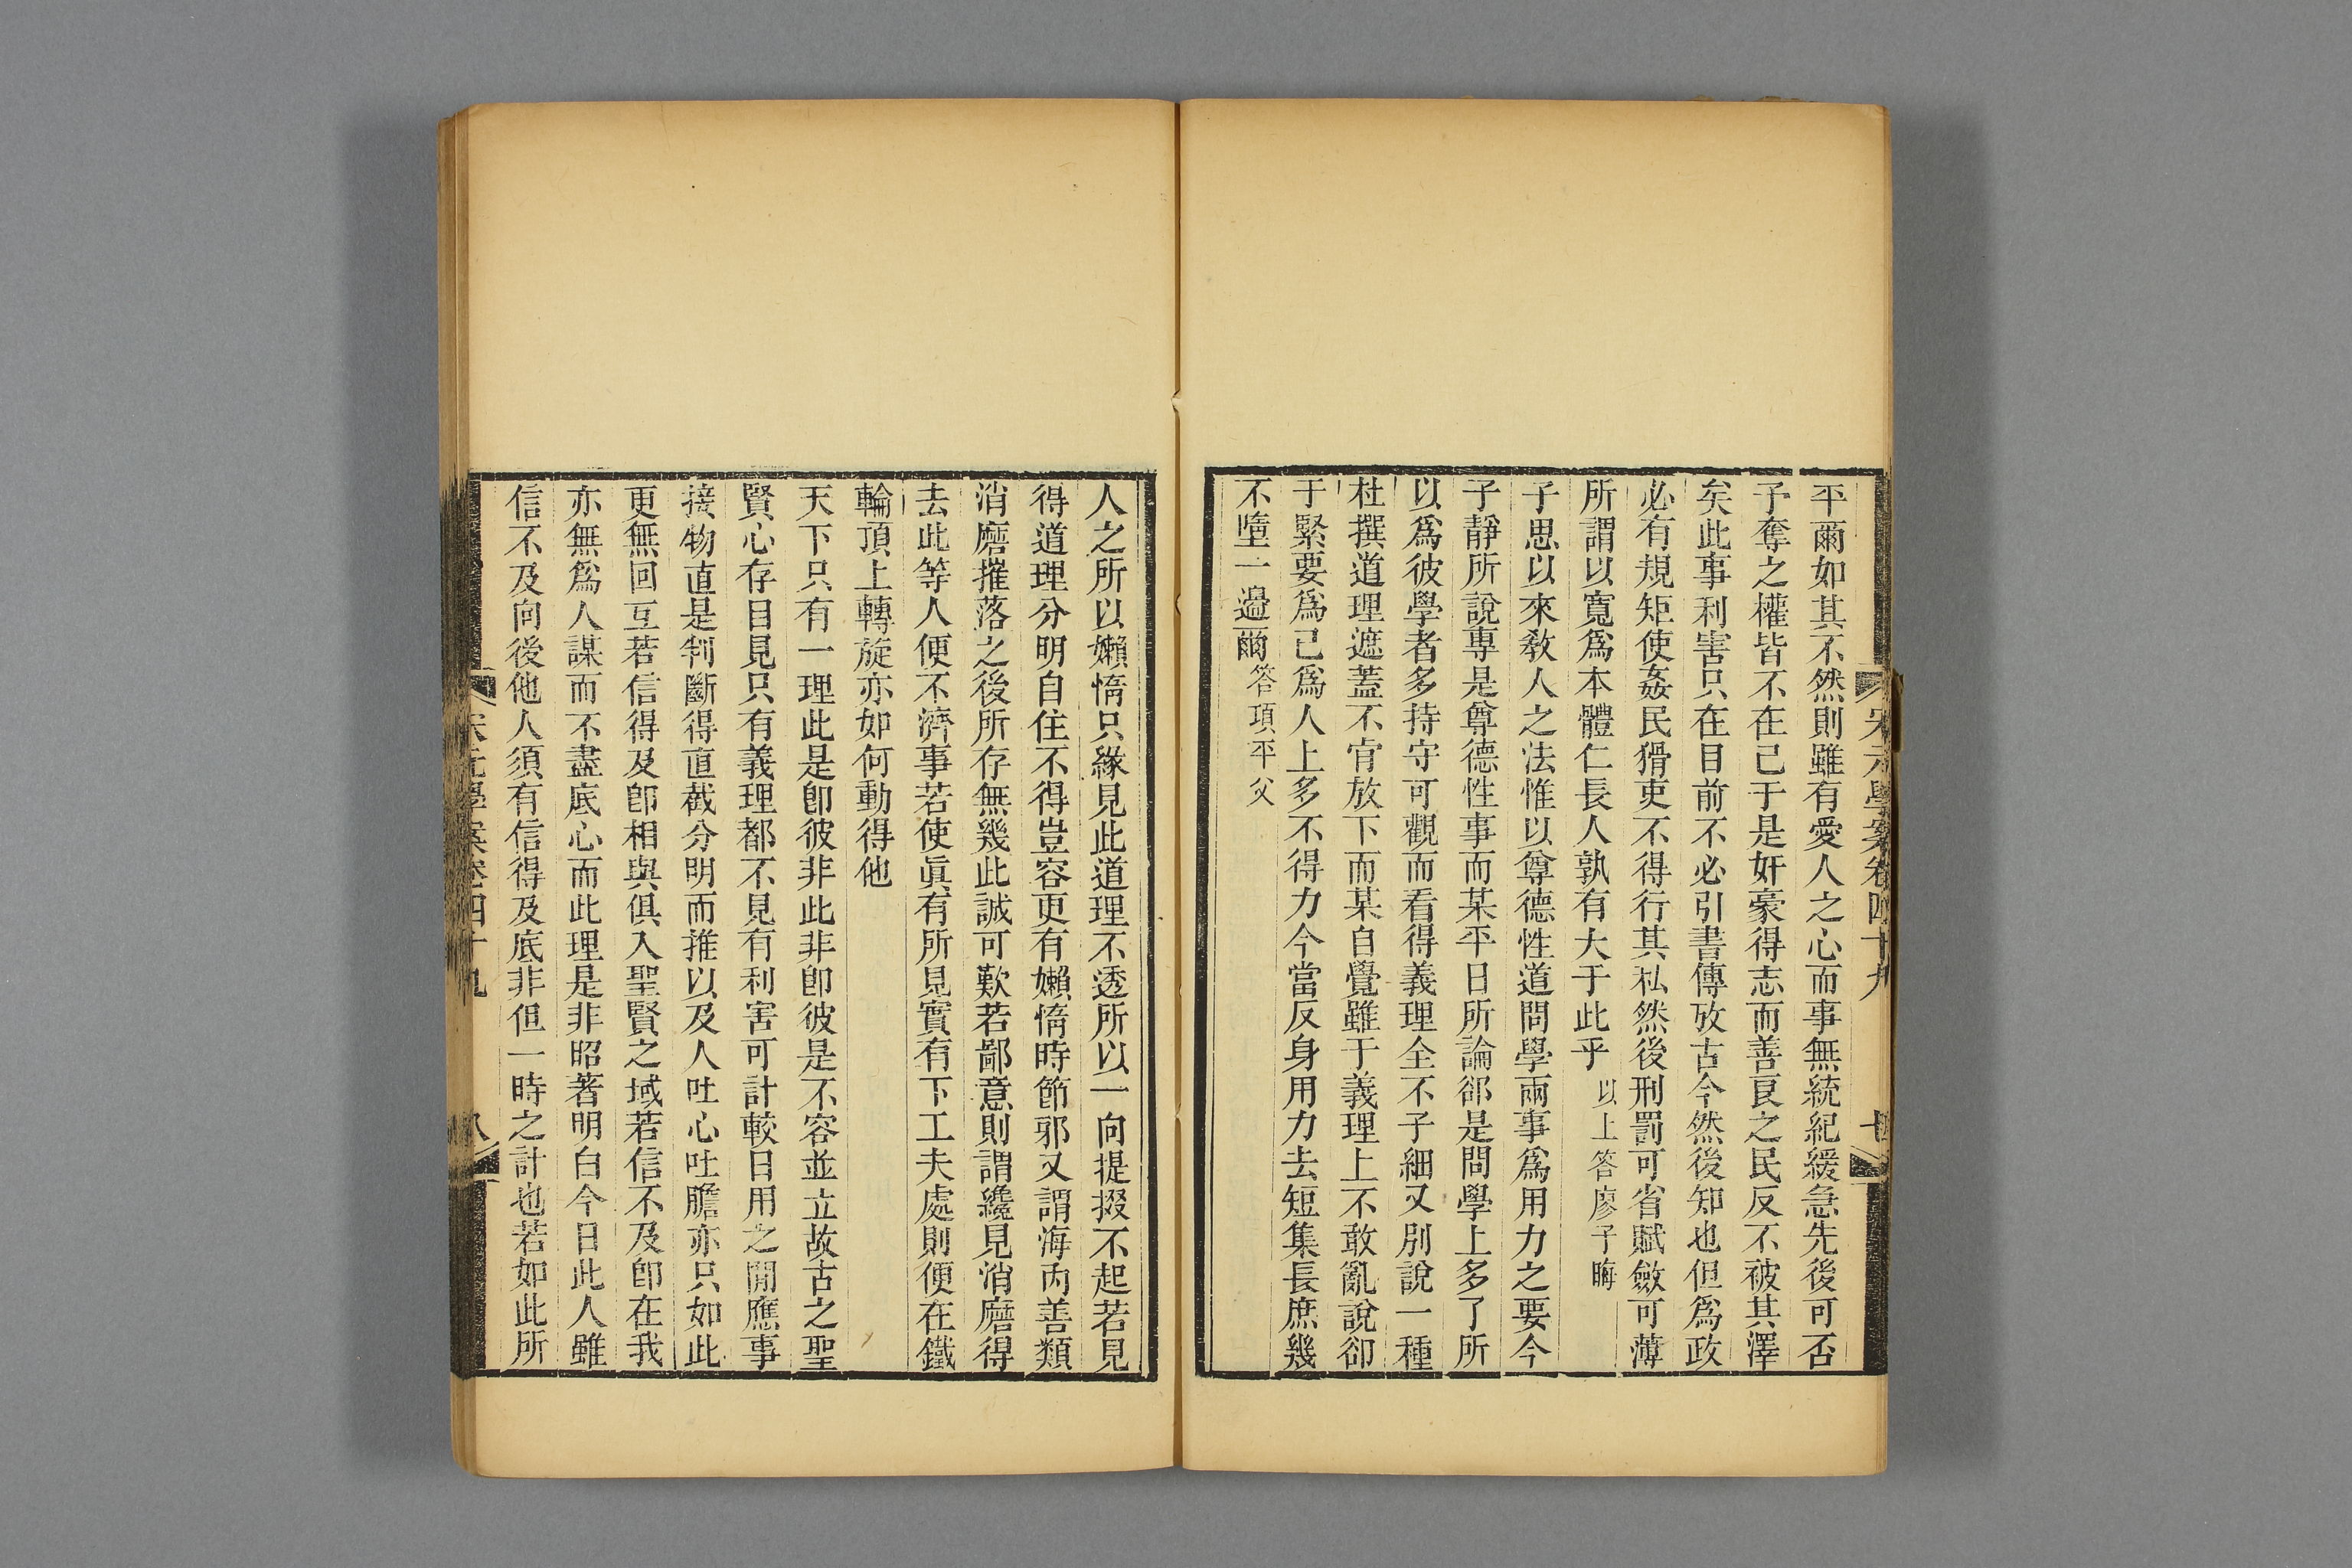 宋元學案卷四十九
平爾如其不然則雖有愛人之心而事無統紀緩急先後可否
予奪之權皆不在己于是奸豪得志而善良之民反不被其澤
矣此事利害只在目前不必引書傳攷古今然後知也但爲政
必有規矩使姦民猾吏不得行其私然後刑罰可省賦斂可薄
所謂以寬爲本體仁長人孰有大于此乎以上答廖子晦
子思以來敎人之法惟以尊德性道問學兩事爲用力之要今
子靜所說專是尊德性事而某平日所論卻是問學上多了所
以爲彼學者多持守可觀而看得義理全不子細又別說一種
杜撰道理遮蓋不肎放下而某自覺雖于義理上不敢亂說卻
于緊要爲己爲人上多不得力今當反身用力去短集長庶幾
不墮一邊爾答項平父
人之所以嬾惰只緣見此道理不透所以一向提掇不起若見
得道理分明自住不得豈容更有嬾惰時節邪又謂海內善類
消磨摧落之後所存無幾此誠可歎若鄙意則謂纔見消磨得
去此等人便不濟事若使眞有所見實有下工夫處則便在鐵
輪頂上轉旋亦如何動得他
天下只有一理此是卽彼非此非卽彼是不容並立故古之聖
賢心存目見只有義理都不見有利害可計較日用之閒應事
接物直是判斷得直截分明而推以及人吐心吐膽亦只如此
更無回互若信得及卽相與俱入聖賢之域若信不及卽在我
亦無爲人謀而不盡底心而此理是非昭著明白今日此人雖
信不及向後他人須有信得及底非但一時之計也若如此所
宋元學案卷四十九
八